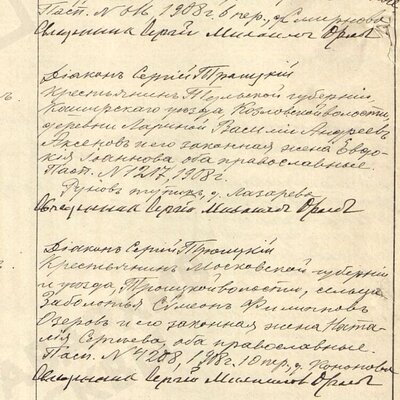 Пасп. № 1908 г. пер., д. Смирнова
Священникъ Сергiй Михайловъ Орловъ
Дiаконъ Сергiй Троицкiй
Крестьянинъ Тульской губернiи,
Каширскаго уѣзда, Козловской волости,
деревни Лариной Василiй Андреевъ
Аксеновъ и его законная жена Евдо-
кiя Iоаннова, оба православные.
Пасп. № 1217, 1908 г.
тупикъ, д. Лазарева
Священникъ Сергiй Михайловъ Орловъ
Дiаконъ Сергiй Троицкiй
Крестьянинъ Московской губернiи
и уѣзда, Троицкой волости, сельца
Заболотья Сѵмеонъ Филипповъ
Озеровъ и его законная жена Ната-
лiя Сергѣева, оба православные.
Пасп. № 4278, 1908 г. пер., д. Кононова
Священникъ Сергiй Михайловъ Орловъ